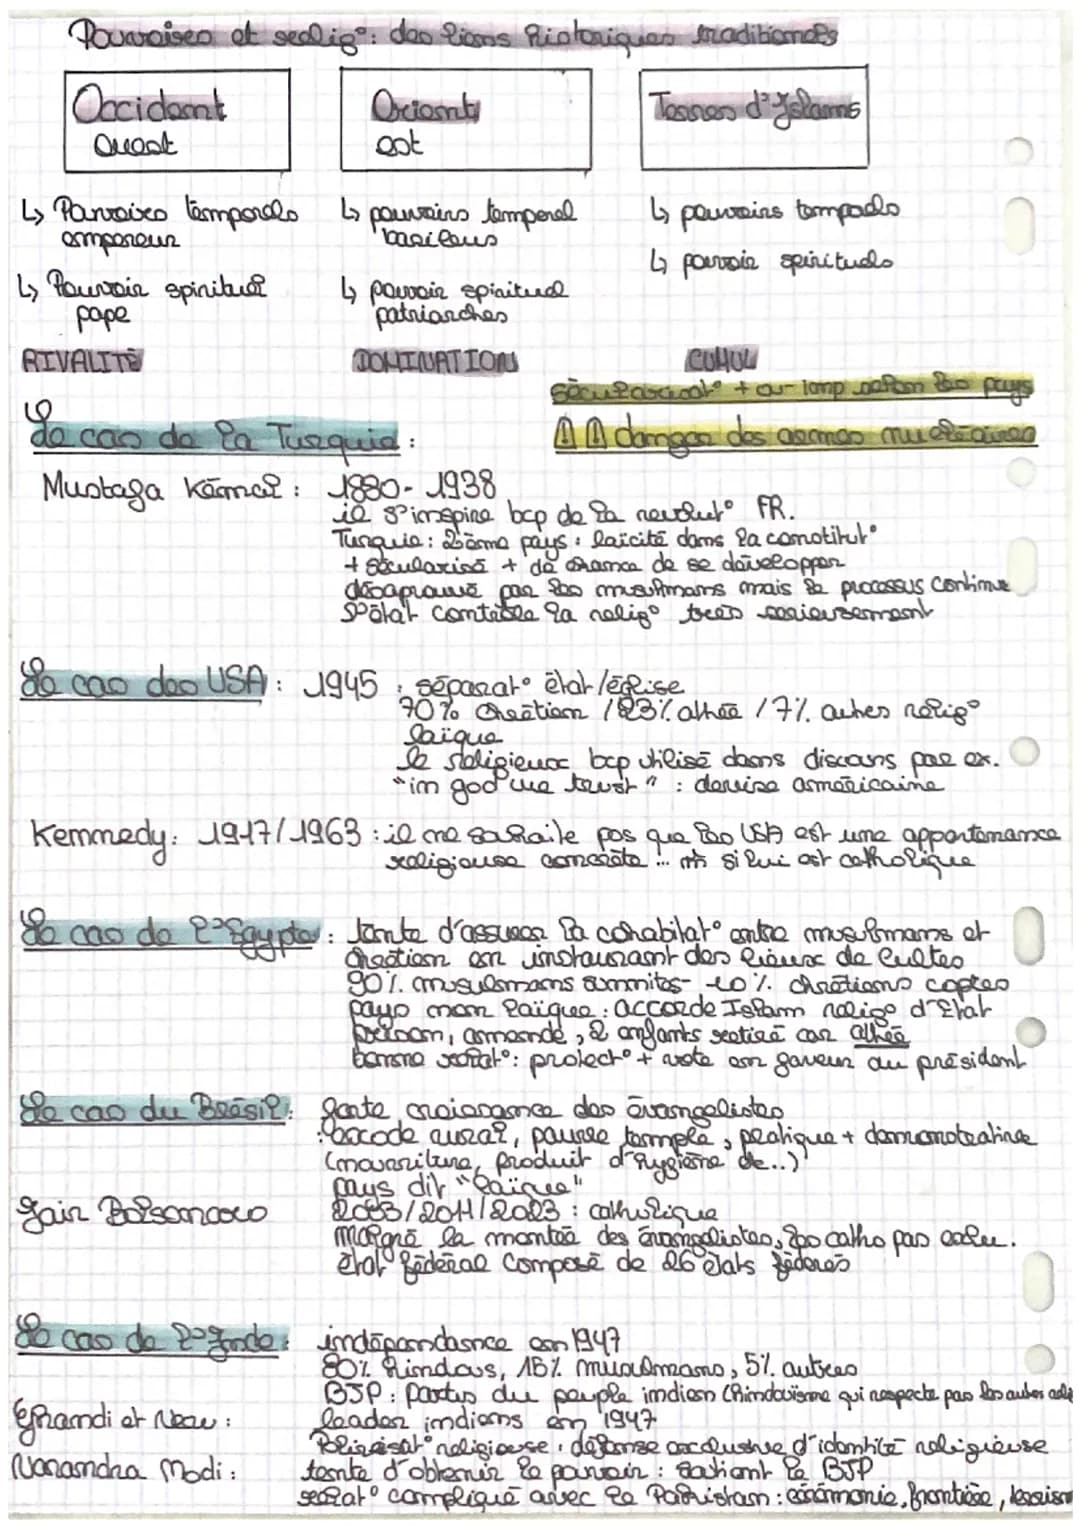 Pouvoires et relig°: des liens historiques traditionels
Occident
ouest
Orient
est
Terres d'Islams
↳ Pouvoires temporels
empereur
↳ Pouvoir spirituel
pape
↳ pouvoirs temporel
basileus
↳ pouvoir spirituel
patriarches
↳ pouvoirs temporels
↳ pouvoir spirituels
RIVALITÉ
DOMINATION
CUMUL
sécularisat° + ou - imp selon les pays
⚠ ⚠ danger des armes nucléaires
Le cas de la Turquie :
Mustafa Kémal : 1880 - 1938
il s'inspire bcp de la revolut° FR.
Turquie : 2ème pays : laïcité dans la constitut°
+ sécularisé + de chance de se développer
désaprouvé par les musulmans mais le processus continue
l'état contrôle la relig° très serieusement
Le cas des USA : 1945 : séparat° état/église
70% chrétien / 23% athée / 7% autres relig°
laïque
le religieux bcp utilisé dans discours par ex.
"in god we trust" : devise américaine
Kennedy : 1917/1963 : il ne souhaite pas que les USA est une appartenance
religieuse concrète ... m̂ si lui est catholique
Le cas de l'Egypte : tente d'assurer la cohabitat° entre musulmans et
chrétien en instaurant des lieux de cultes
90% musulmans sunnites - 10% chrétiens coptes
pays non laïque : accorde Islam relig° d'Etat
prison, amende, 2 enfants retiré car athée
bonne relat° : protect° + vote en faveur du président
Le cas du Brésil : forte croissance des évangelistes
: exode rural, pauvre temple, pratique + démonstrative
(nourriture, produit d'hygiène etc..)
pays dit "laïque"
Jair Bolsonaro
: catholique
Malgré la montée des évangelistes, les catho pas exclu.
état fédéral composé de 26 états féderés
Le cas de l'Inde : indépendance en 1947
80% hindous, 15% musulmans, 5% autres
BJP : partis du peuple indien (hindouïsme qui respecte pas les autres
Ghandi et Neru : leader indiens en 1947
religieuse : défense exclusive d'identité religieuse
Narandra Modi : tente d'obtenir le pouvoir : le BJP
relat° compliqué avec le Pakistan : cérémonie, frontière,